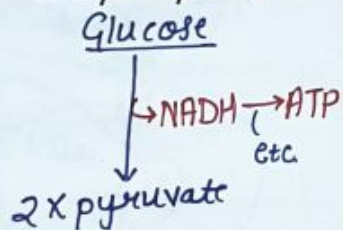 Glucose
NADH → ATP
etc
2 x pyruvate